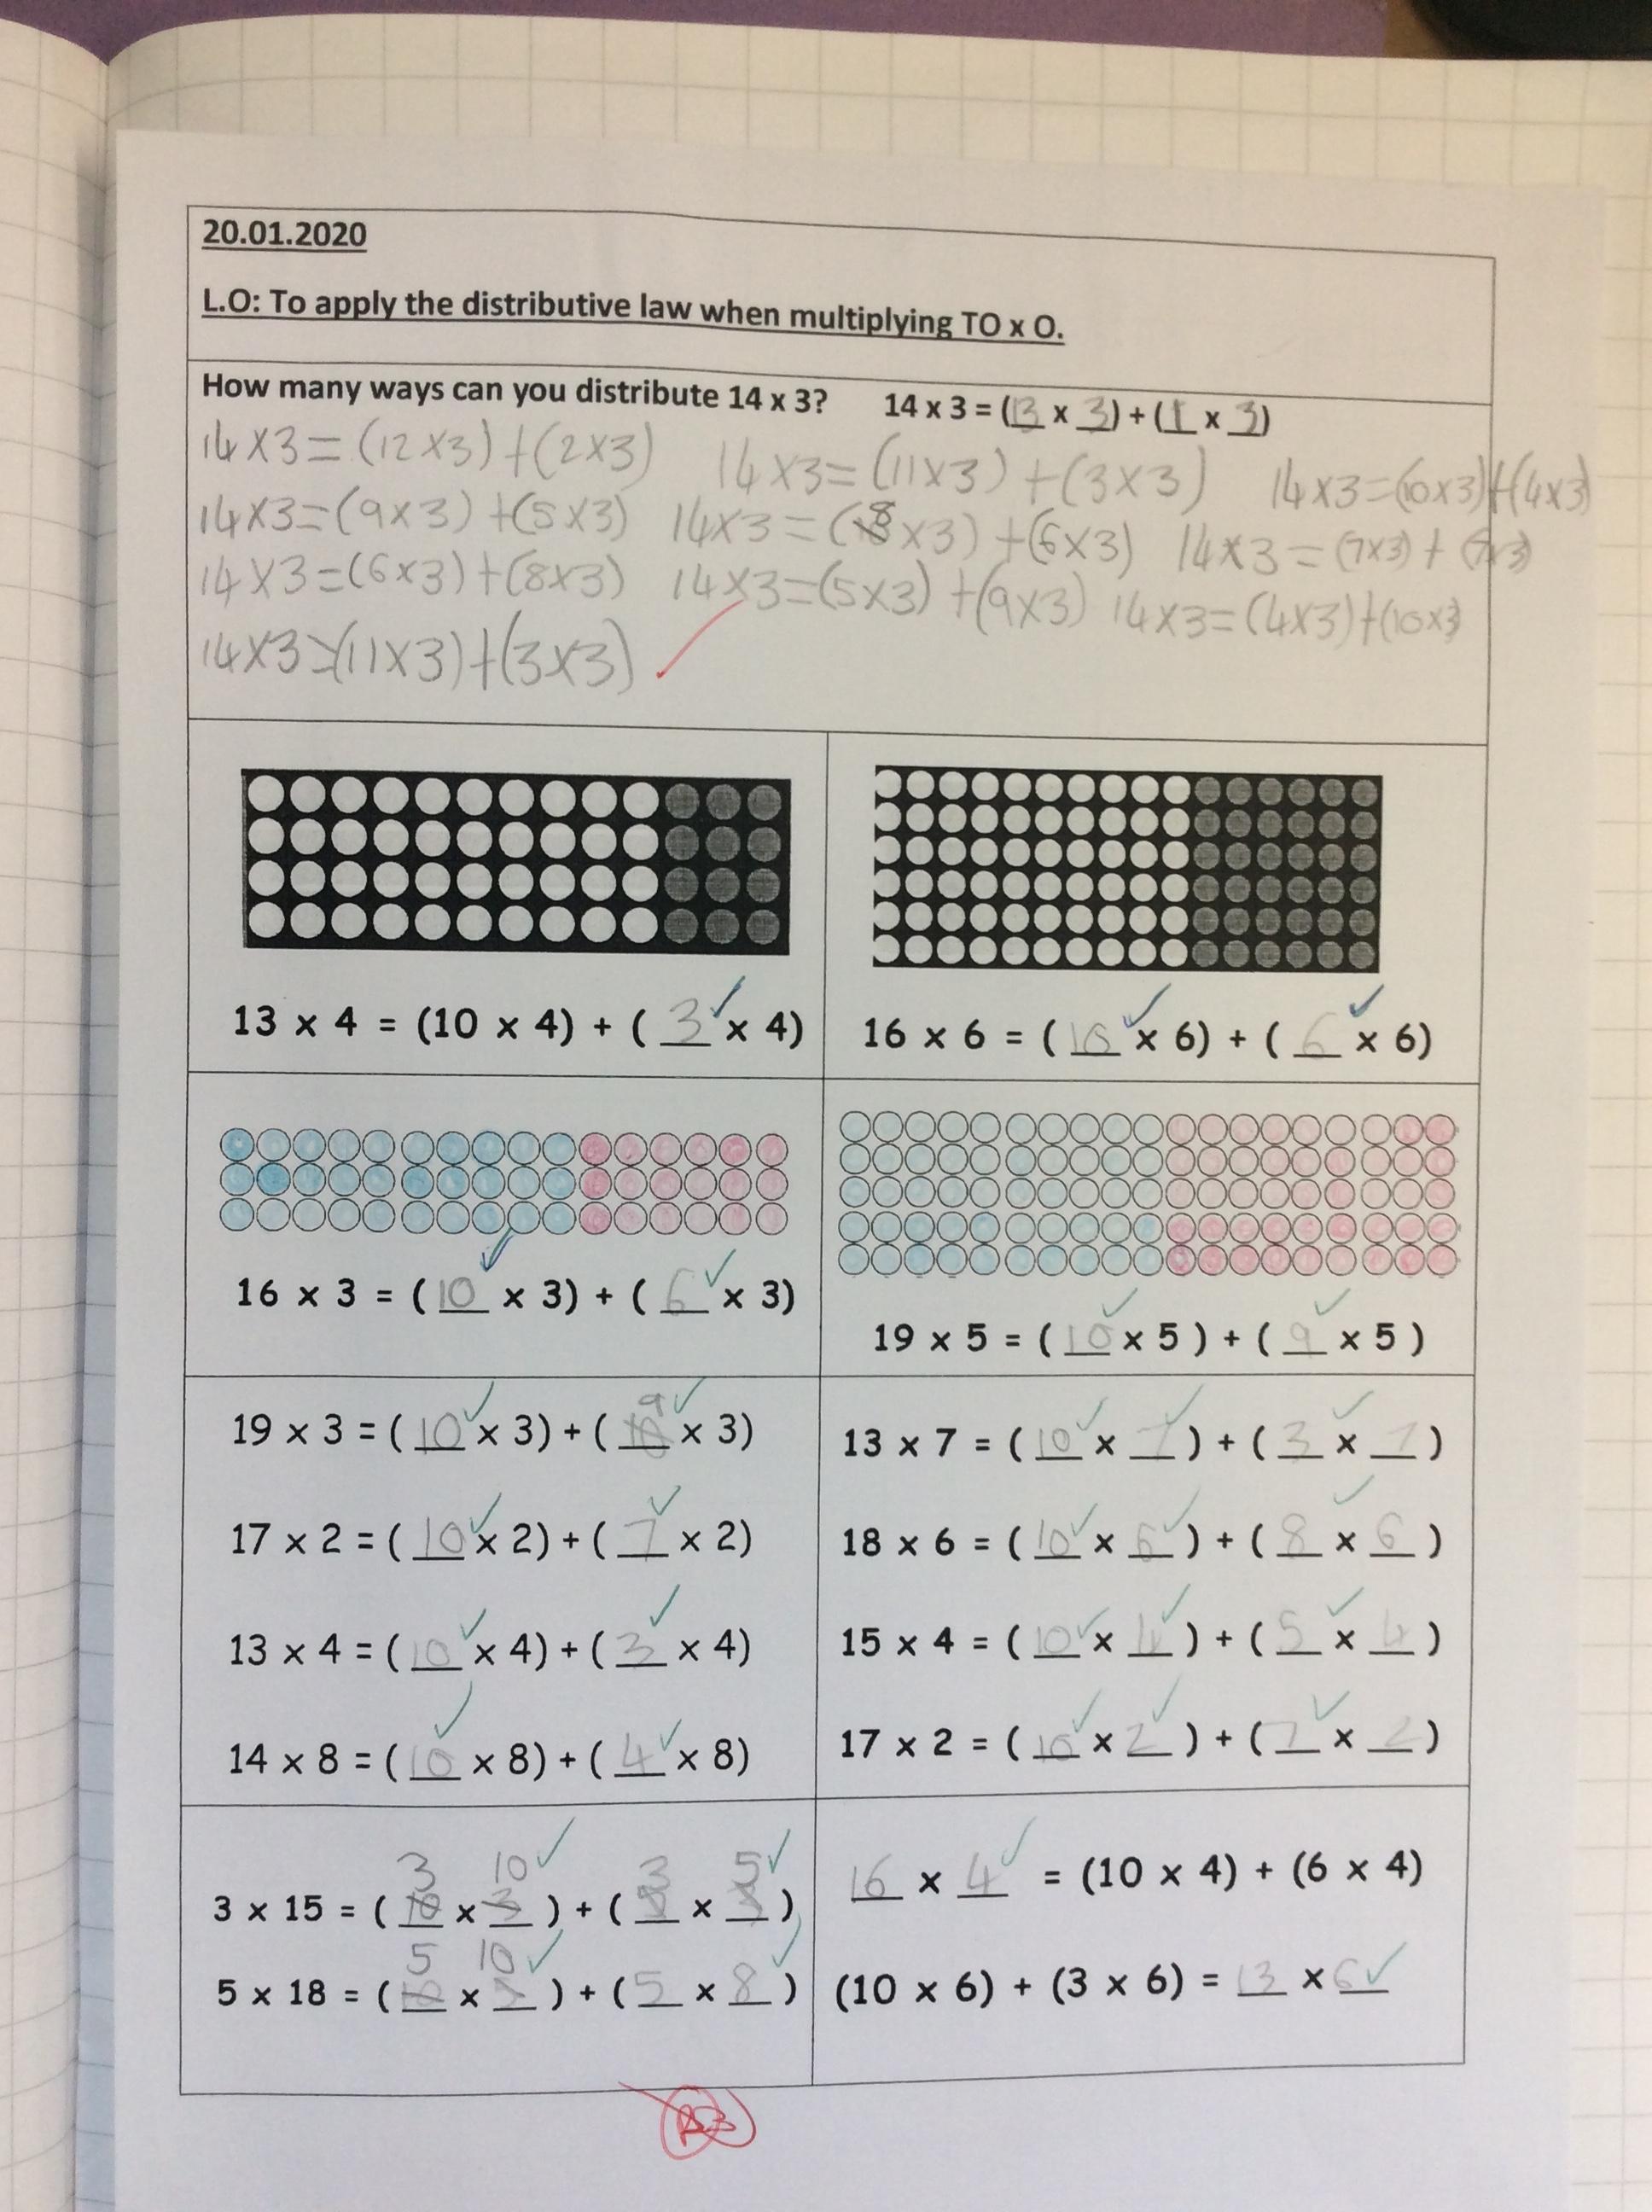 20.01.2020
L.O: To apply the distributive law when multiplying TO x O.
How many ways can you distribute 14 x 3? 14 x 3 = (13 x 3) + (1 x 3)
14 x 3 = (12 x 3) + (2 x 3) 14 x 3 = (11 x 3) + (3 x 3) 14 x 3 = (10 x 3) + (4 x 3)
14 x 3 = (9 x 3) + (5 x 3) 14 x 3 = (8 x 3) + (6 x 3) 14 x 3 = (7 x 3) + (7 x 3)
14 x 3 = (6 x 3) + (8 x 3) 14 x 3 = (5 x 3) + (9 x 3) 14 x 3 = (4 x 3) + (10 x 3)
14 x 3 = (11 x 3) + (3 x 3)
13 x 4 = (10 x 4) + ( 3 x 4)
16 x 6 = ( 10 x 6) + ( 6 x 6)
16 x 3 = ( 10 x 3) + ( 6 x 3)
19 x 5 = ( 10 x 5 ) + ( 9 x 5 )
19 x 3 = ( 10 x 3) + ( 9 x 3)
17 x 2 = ( 10 x 2) + ( 7 x 2)
13 x 4 = ( 10 x 4) + ( 3 x 4)
14 x 8 = ( 10 x 8) + ( 4 x 8)
13 x 7 = ( 10 x 7 ) + ( 3 x 7 )
18 x 6 = ( 10 x 6 ) + ( 8 x 6 )
15 x 4 = ( 10 x 4 ) + ( 5 x 4 )
17 x 2 = ( 10 x 2 ) + ( 7 x 2 )
3 x 15 = ( 3 x 10 ) + ( 3 x 5 )
5 x 18 = ( 5 x 10 ) + ( 5 x 8 )
16 x 4 = (10 x 4) + (6 x 4)
(10 x 6) + (3 x 6) = 13 x 6